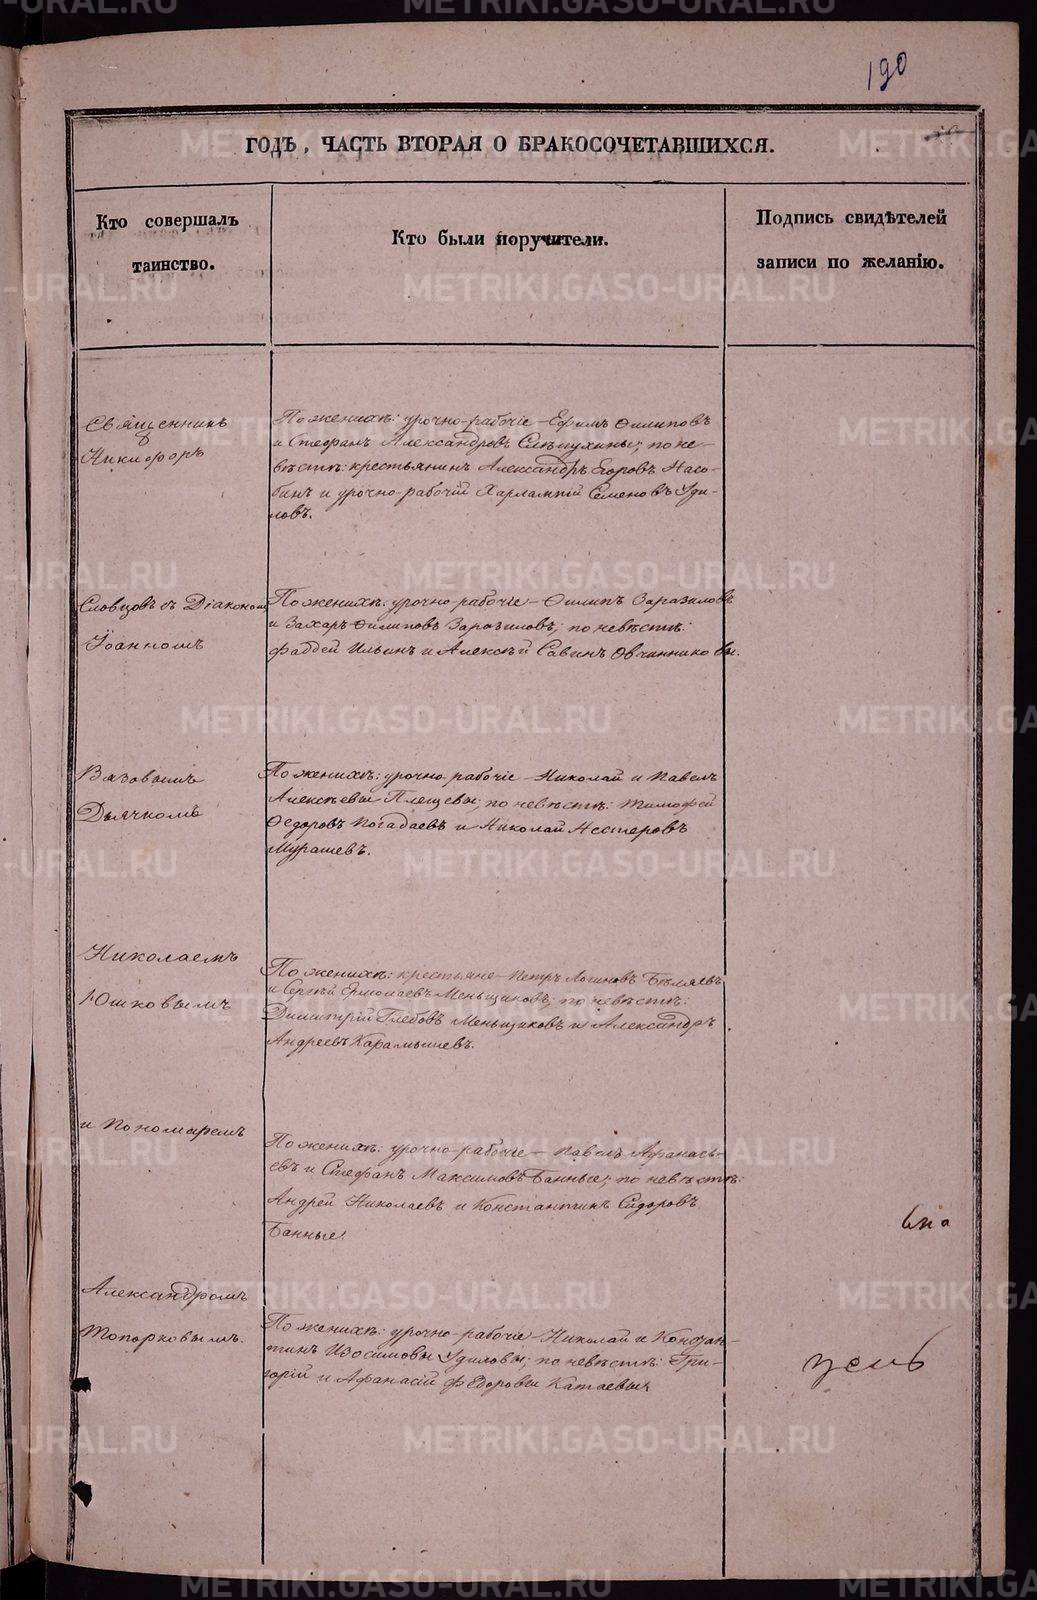 190
ГОДЪ, ЧАСТЬ ВТОРАЯ О БРАКОСОЧЕТАВШИХСЯ.
Кто совершалъ
таинство.
Кто были поручители.
Подпись свидѣтелей
записи по желанію.
Священникъ
Никифоръ
Словцовъ съ Діакономъ
Іоанномъ
Вязовымъ
Дьячкомъ
Николаемъ
Юшковымъ
и Пономаремъ
Александромъ
Топорковымъ.
По женихѣ: урочно-рабочіе – Ефимъ Филиповъ
и Стефанъ Александровъ Слѣпухины; по не-
вѣстѣ: крестьянинъ Александръ Егоровъ Насо-
бинъ и урочно-рабочій Харлампій Семеновъ Уди-
ловъ.
По женихѣ: урочно рабочіе – Филипъ Заразиловъ
и Захаръ Филиповъ Заразиловъ; по невѣстѣ:
Фаддей Ильинъ и Алексѣй Савинъ Овчинниковы.
По женихѣ: урочно рабочіе – Николай и Павелъ
Алексѣевы Плещевы; по невѣстѣ: Тимофей
Ѳедоровъ Погадаевъ и Николай Нестеровъ
Мурашевъ.
По женихѣ: крестьяне – Петръ Логиновъ Бѣляевъ
и Сергѣй Ермолаевъ Меньщиковъ; по невѣстѣ:
Димитрій Глебовъ Меньщиковъ и Александръ
Андреевъ Карамышевъ.
По женихѣ: урочно-рабочіе – Павелъ Афанась-
евъ и Стефанъ Максимовъ Банные; по невѣстѣ:
Андрей Николаевъ и Константинъ Сидоровъ
Банные.
По женихѣ: урочно-рабочіе – Николай и Констан-
тинъ Изосимовы Удиловы; по невѣстѣ: Гри-
горій и Афанасій Федоровы Катаевы.
METRIKI.GASO-URAL.RU